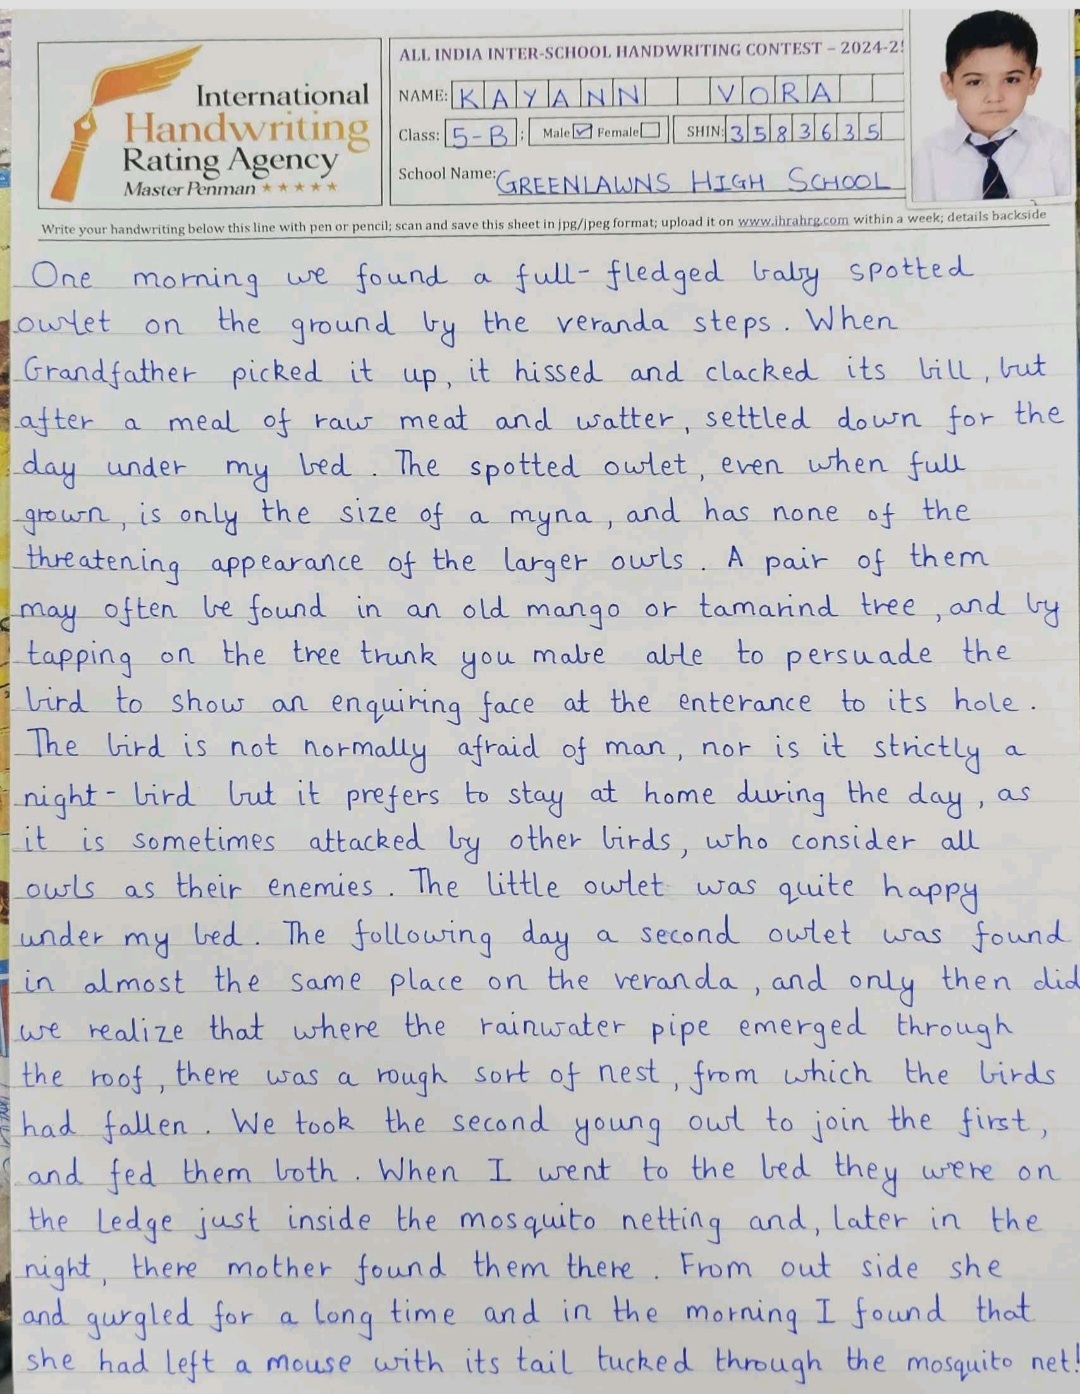 International
Handwriting
Rating Agency
Master Penman ★★★★★
ALL INDIA INTER-SCHOOL HANDWRITING CONTEST – 2024-25
NAME: KAYANN VORA
Class: 5-B ; Male ☑ Female ☐ SHIN: 3583635
School Name: GREENLAWNS HIGH SCHOOL
Write your handwriting below this line with pen or pencil; scan and save this sheet in jpg/jpeg format; upload it on www.ihrahrg.com within a week; details backside
One morning we found a full-fledged baby spotted
owlet on the ground by the veranda steps. When
Grandfather picked it up, it hissed and clacked its bill, but
after a meal of raw meat and watter, settled down for the
day under my bed. The spotted owlet, even when full
grown, is only the size of a myna, and has none of the
threatening appearance of the larger owls. A pair of them
may often be found in an old mango or tamarind tree, and by
tapping on the tree trunk you mabe able to persuade the
bird to show an enquiring face at the enterance to its hole.
The bird is not normally afraid of man, nor is it strictly a
night-bird but it prefers to stay at home during the day, as
it is sometimes attacked by other birds, who consider all
owls as their enemies. The little owlet was quite happy
under my bed. The following day a second owlet was found
in almost the same place on the veranda, and only then did
we realize that where the rainwater pipe emerged through
the roof, there was a rough sort of nest, from which the birds
had fallen. We took the second young owl to join the first,
and fed them both. When I went to the bed they were on
the Ledge just inside the mosquito netting and, later in the
night, there mother found them there. From out side she
and gurgled for a long time and in the morning I found that
she had left a mouse with its tail tucked through the mosquito net!